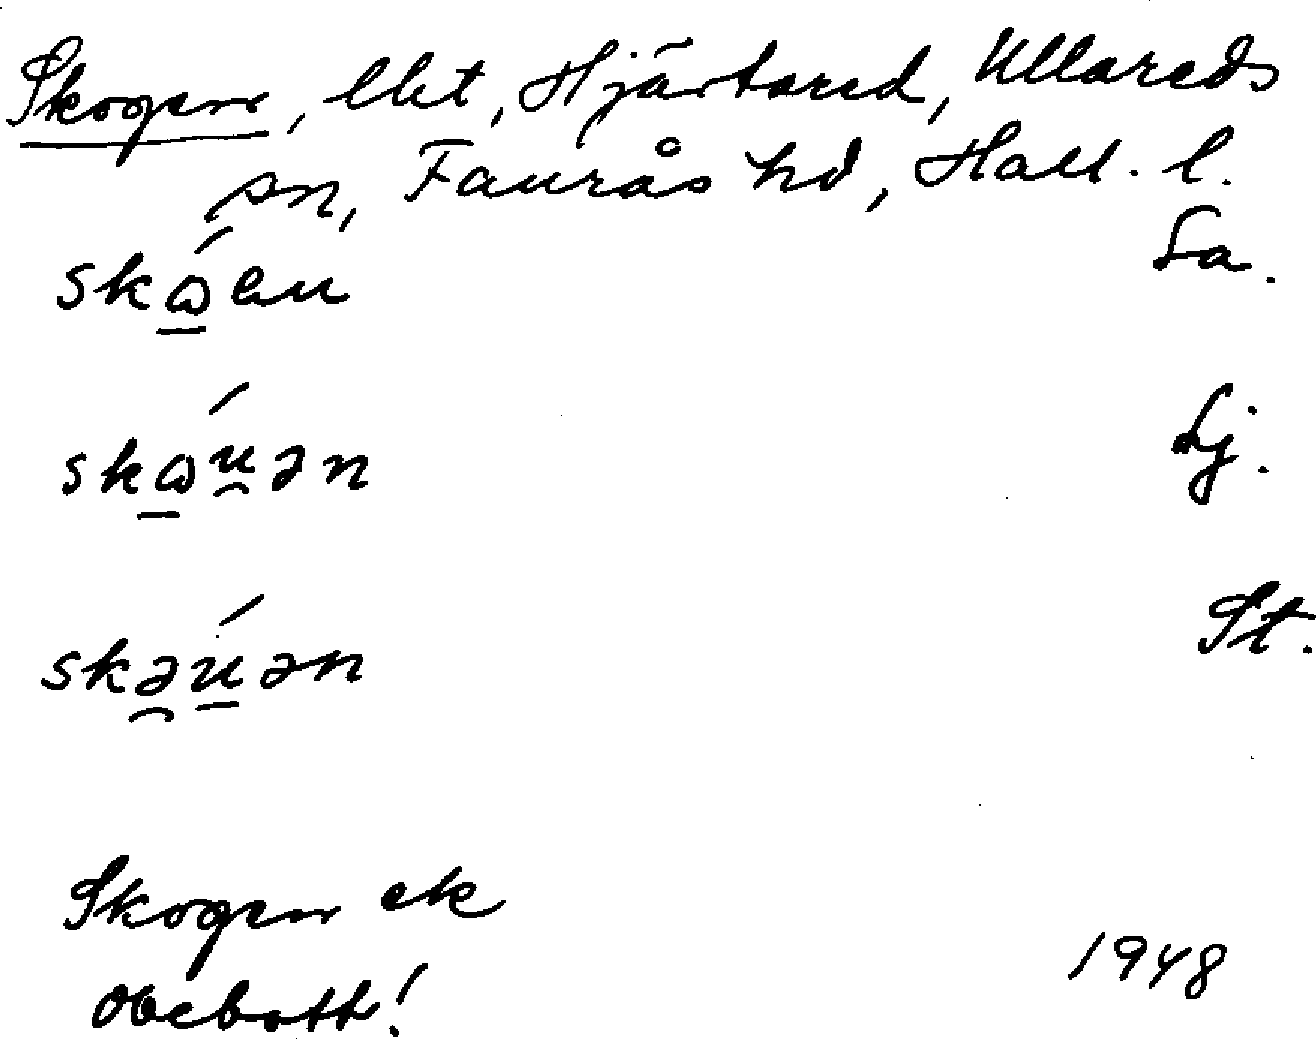 Skogen, lht, Hjärtared, Ullareds
sn, Faurås hd, Hall. l.
La.
Lj.
skau̯ən
St.
skəu̯ən
Skogen ek
obebott!
1948